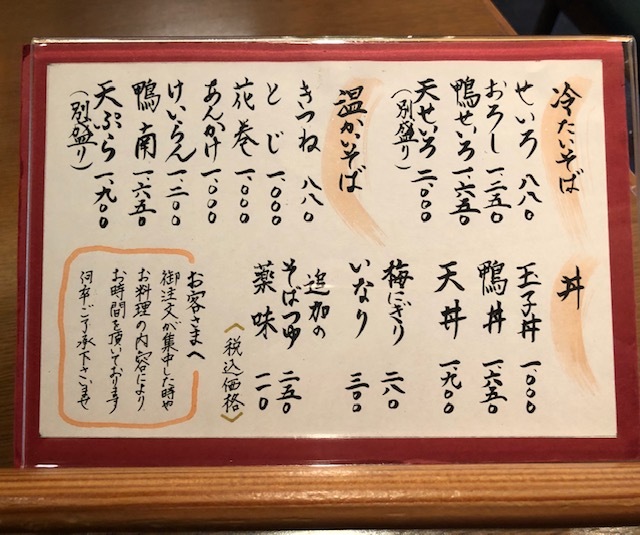 冷たいそば
せいろ 八八〇
おろし 一、二五〇
鴨せいろ 一、六五〇
天せいろ 二、〇〇〇
(別盛り)
温かいそば
きつね 八八〇
とじ 一、〇〇〇
花巻 一、〇〇〇
あんかけ 一、〇〇〇
けいらん 一、二〇〇
鴨南 一、六五〇
天ぷら 一、九〇〇
(別盛り)
丼
玉子丼 一、〇〇〇
鴨丼 一、六五〇
天丼 一、九〇〇
梅にぎり 二八〇
いなり 三〇〇
追加の
そばつゆ 二五〇
薬味 一一〇
〈税込価格〉
お客さまへ
御注文が集中した時や
お料理の内容により
お時間を頂いております
何卒ご了承下さいませ